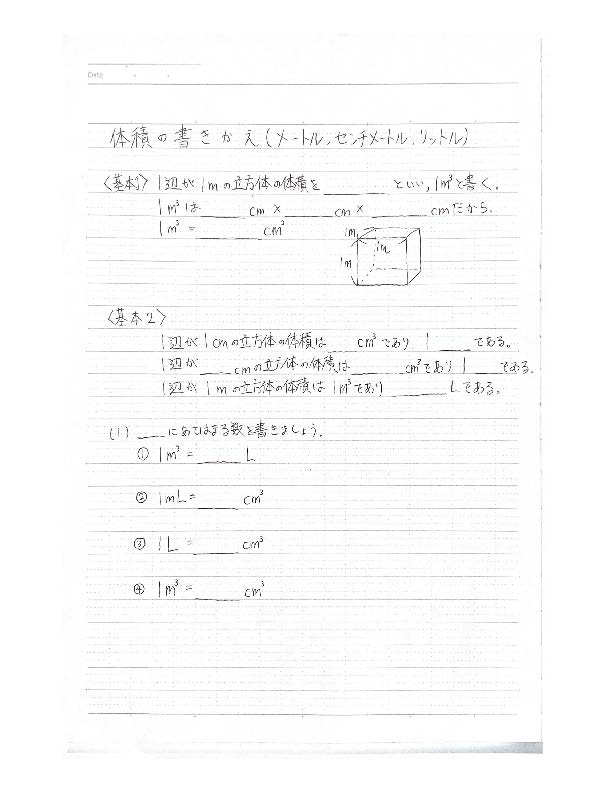 Date
体積の書きかえ(メートル,センチメートル,リットル)
〈基本1〉1辺が1mの立方体の体積を______といい,1m³と書く。
1m³は____cm×______cm×______cmだから.
1m³=______cm³
1m
1m
1m
〈基本2〉
1辺が1cmの立方体の体積は___cm³であり1____である。
1辺が____cmの立方体の体積は______cm³であり1____である.
1辺が1mの立方体の体積は1m³であり______Lである。
(1) ____にあてはまる数を書きましょう.
① 1m³=____L
② 1mL=____cm³
③ 1L=____cm³
④ 1m³=____cm³